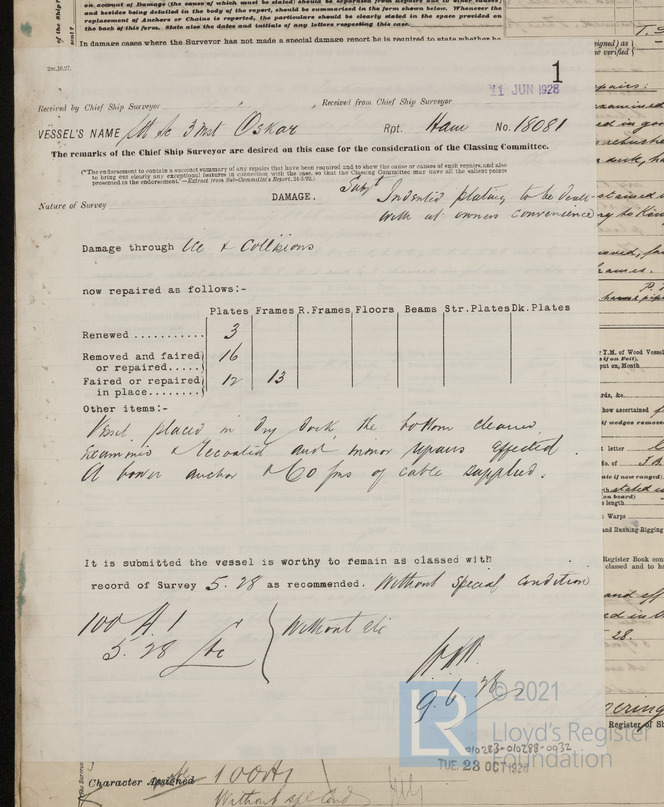 on account of Damage (the cause of which must be stated) should be separated from Repairs due to other causes;
and besides being detailed in the body of the report, should be summarised in the form shown below. Whenever the
replacement of Anchors or Chains is reported, the particulars should be clearly stated in the space provided on
the back of this form. State also the dates and initials of any letters respecting this case.
In damage cases where the Surveyor has not made a special damage report he is required to state whether he
2m,10.27.
1
11 JUN 1928
Received by Chief Ship Surveyor Received from Chief Ship Surveyor
VESSEL'S NAME 3 Mst Oskar Rpt. Ham No. 18081
The remarks of the Chief Ship Surveyor are desired on this case for the consideration of the Classing Committee.
(*The endorsement to contain a succinct summary of any repairs that have been required and to show the cause or causes of such repairs, and also
to bring out clearly any exceptional features in connection with the case, so that the Classing Committee may have all the salient points
presented in the endorsement.—Extract from Sub-Committee's Report, 24.6.92.)
DAMAGE.
Subj t Indented plating to be dealt
with at owners convenience
Nature of Survey
Damage through Ice & Collisions
now repaired as follows:-
Plates Frames R.Frames Floors Beams Str.Plates Dk.Plates
Renewed ........... 3
Removed and faired 16
or repaired.....
Faired or repaired 12 13
in place........
Other items:-
Vessel placed in dry dock the bottom cleaned
Examined & recoated and minor repairs effected.
A bower anchor & 60 fms of cable supplied.
It is submitted the vessel is worthy to remain as classed with
record of Survey 5.28 as recommended. Without Special Condition
100 A.1 Without etc
5.28
9.6.28
© 2021
LR
Lloyd's Register
Foundation
010283-010288-0032
TUE. 23 OCT 1928
Character Assigned 100A1
Without spl Cond